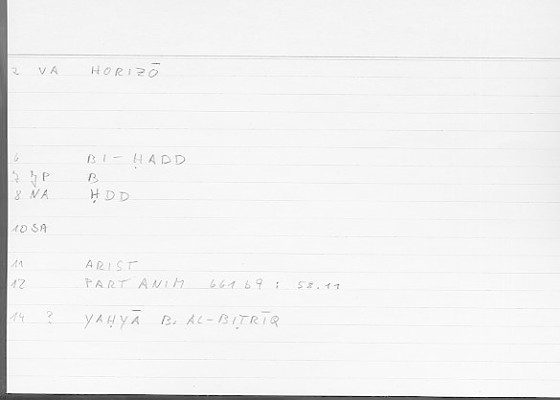 2 VA HORIZŌ
6 BI-ḤADD
7 JP B
8 NA ḤDD
10 SA
11 ARIST
12 PART ANIM 661 b9 : 58.11
14 ? YAḤYĀ B. AL-BIṬRĪQ